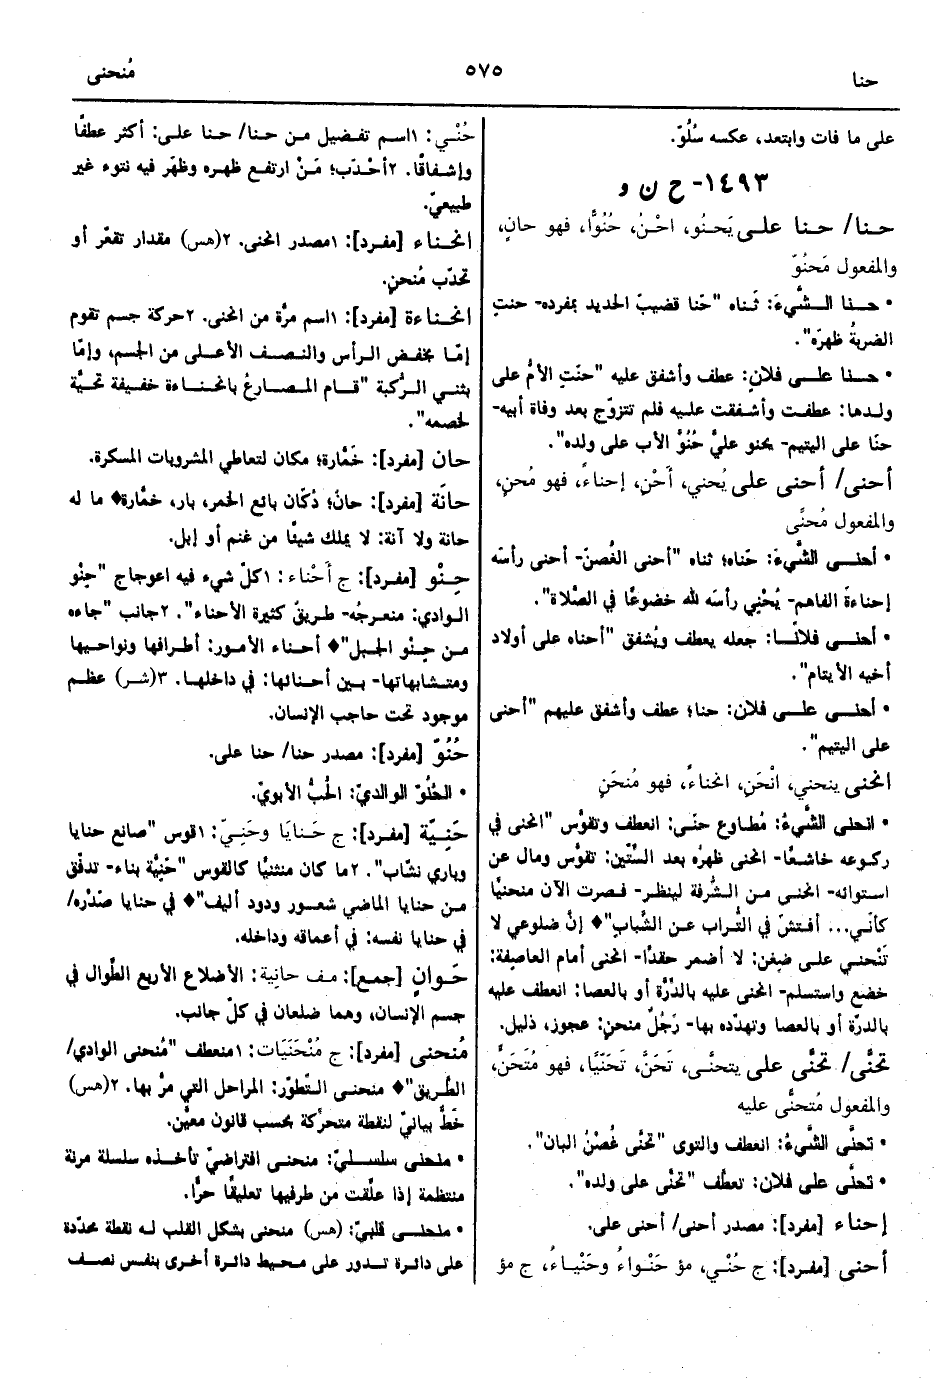 حنا
٥٧٥
مُنحنى
على ما فات وابتعد، عكسه سُلُوّ.
١٤٩٣- ح ن و
حـنـا/ حـنـا علـى يَحـنُو، احْـنُ، حُنُوًّا، فهو حانٍ،
والمفعول مَحنُوّ
• حـنـا الـشَّيءَ: ثَـناه "حَنا قضيبَ الحديد بمفرده- حنتِ
الضربةُ ظهرَه".
• حـنـا علـى فلانٍ: عطف وأشفق عليه "حنَتِ الأمُّ على
ولـدها: عطفـت وأشـفقت علـيه فلم تتزوّج بعد وفاة أبيه-
حنَا على اليتيم- يحنو عليَّ حُنُوَّ الأب على ولده".
أحنى/ أحنى على يُحني، أَحْنِ، إحناءً، فهو مُحنٍ،
والمفعول مُحنًى
• أحنـى الشَّيءَ: حَناه؛ ثناه "أحنى الغُصنَ- أحنى رأسَه
إحناءةَ الفاهم- يُحْنِي رأسَه لله خضوعًا في الصَّلاة".
• أحنـى فلانًـا: جعله يعطف ويُشفق "أحناه على أولاد
أخيه الأيتام".
• أحنـى علـى فلان: حنا؛ عطف وأشفق عليهم "أحنى
على اليتيم".
انحنى ينحني، انْحَنِ، انحناءً، فهو مُنحَنٍ
• انحنى الشَّيءُ: مُطاوع حنَى: انعطف وتقوّس "انحنى في
ركـوعه خاشـعًا- انحنى ظهرُه بعد السِّتّين: تقوّس ومال عن
اسـتوائه- انحنـى مـن الشُّرفة لينظر- فصرت الآن منحنيًا
كأنّي... أفتـشُ في التُّراب عـن الشَّباب"♦ إنَّ ضلوعي لا
تَنْحنـي علـى ضِـغن: لا أضمر حقدًا- انحنى أمام العاصِفة:
خضع واستسلم- انحنى عليه بالدِّرَّة أو بالعصا: انعطف عليه
بالدرّة أو بالعصا وتهدّده بها- رَجُلٌ منحنٍ: عجوز، ذليل.
تحنَّى/ تحنَّى على يتحنَّى، تَحَنَّ، تَحَنِّيًا، فهو مُتَحَنٍّ،
والمفعول مُتحنًّى عليه
• تحنَّى الشَّيءُ: انعطف والتوى "تحنَّى غُصْنُ البان".
• تحنَّى على فلان: تعطَّف "تحنَّى على ولده".
إحناء [مفرد]: مصدر أحنى/ أحنى على.
أحنى [مفرد]: ج حُنْي، مؤ حَنْواءُ وحَنْياءُ، ج مؤ
حُنْي: ١اسـم تفـضيل مـن حـنا/ حـنا علـى: أكثر عطفًا
وإشـفاقًا. ٢أحْـدَب؛ مَـنْ ارتفـع ظهـره وظهَر فيه نتوء غير
طبيعيّ.
انحـناء [مفـرد]: ١مصدر انحنى. ٢(هس) مقدار تقعّر أو
تحدّب مُنحنٍ.
انحـناءة [مفرد]: ١اسم مرَّة من انحنى. ٢حركة جسم تقوم
إمّـا بخفض الـرأس والنـصف الأعلـى من الجسم، وإمّا
بثني الـرُّكبة "قـام المـصارعُ بانحـناءة خفـيفة تحيَّة
لخصمه".
حان [مفرد]: خَمَّارة؛ مكان لتعاطي المشروبات المسكرة.
حانَة [مفرد]: حانٌ؛ دُكّان بائع الخمر، بار، خمَّارة♦ ما له
حانة ولا آنة: لا يملك شيئًا من غنم أو إبل.
حِـنْو [مفرد]: ج أَحْناء: ١كلّ شيء فيه اعوجاج "حِنْو
الـوادي: منعـرجُه- طـريقٌ كثيرة الأحناء". ٢جانب "جاءه
مـن حِـنْو الجـبل"♦ أحـناء الأمـور: أطـرافها ونواحـيها
ومتـشابهاتها- بـين أحـنائها: في داخلهـا. ٣(شـر) عظـم
موجود تحت حاجب الإنسان.
حُنُوّ [مفرد]: مصدر حنا/ حنا على.
• الحُنُوّ الوالديّ: الحُبُّ الأبويّ.
حَنِيّة [مفرد]: ج حَـنايَا وحَنِيّ: ١قوس "صانع حنايا
وباري نشّاب". ٢ما كان منثنيًا كالقوس "حَنِيَّة بناء- تدفّق
مـن حـنايا الماضي شعـور ودود أليف"♦ في حنايا صَدْرِه/
في حنايا نفسه: في أعماقه وداخله.
حَـوانٍ [جمع]: مـف حانِية: الأضلاع الأربع الطِّوال في
جسم الإنسان، وهما ضلعان في كلّ جانب.
مُنحنى [مفرد]: ج مُنْحَنَيَات: ١منعطف "مُنحنى الوادي/
الطّريق"♦ منحنـى الـتّطوّر: المراحل التي مرَّ بها. ٢(هس)
خَطٌّ بيانيّ لنقطة متحرِّكة بحسب قانون معيَّن.
• منحنـى سلسلـيّ: منحنـى افتراضيّ تأخـذه سلسلة مرنة
منتظمة إذا علِّقت من طرفيها تعليقًا حرًّا.
• منحنـى قلبيّ: (هس) منحنى بشكل القلب لـه نقطة محدّدة
على دائرة تـدور على مـحيط دائرة أخرى بنفس نصـف